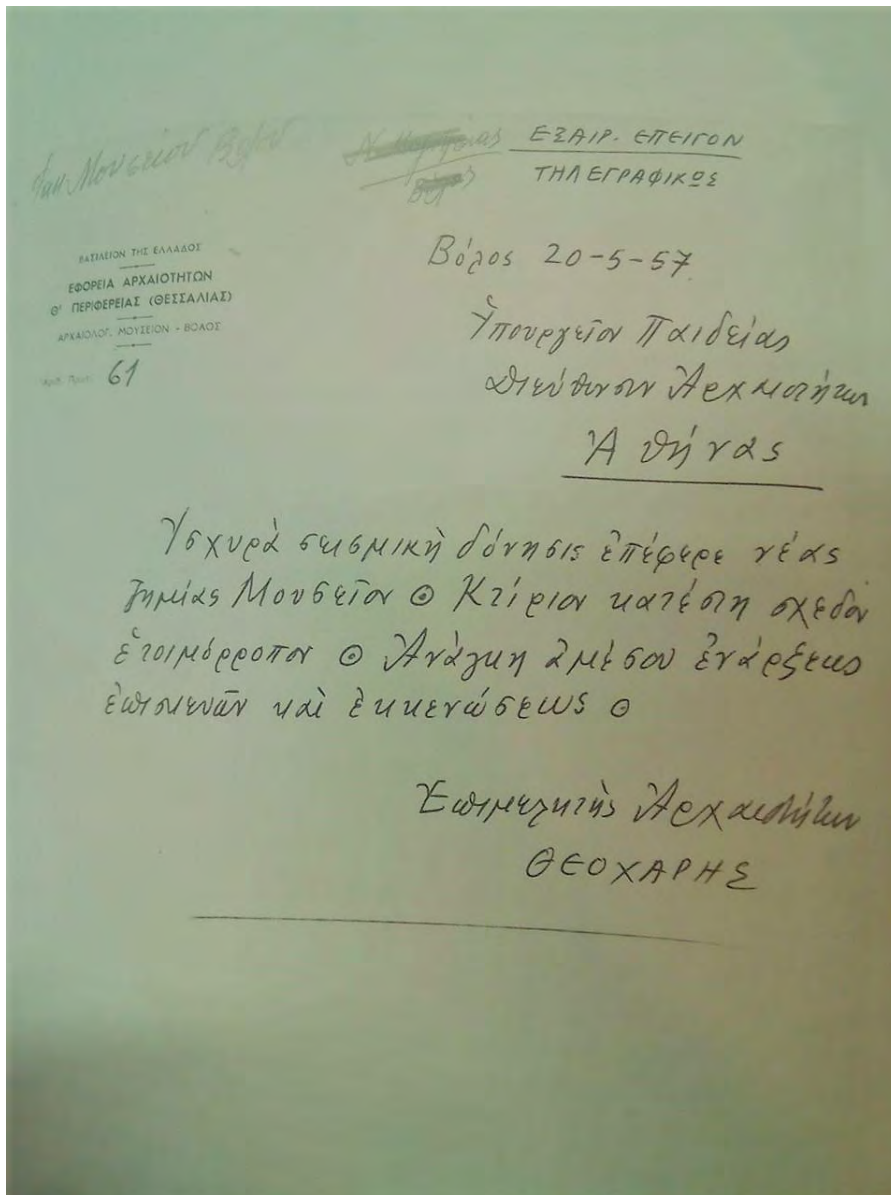 Φακ. Μουσείου Βόλου
ΕΞΑΙΡ. ΕΠΕΙΓΟΝ
ΤΗΛΕΓΡΑΦΙΚΩΣ
ΒΑΣΙΛΕΙΟΝ ΤΗΣ ΕΛΛΑΔΟΣ
ΕΦΟΡΕΙΑ ΑΡΧΑΙΟΤΗΤΩΝ
Θ' ΠΕΡΙΦΕΡΕΙΑΣ (ΘΕΣΣΑΛΙΑΣ)
ΑΡΧΑΙΟΛΟΓ. ΜΟΥΣΕΙΟΝ - ΒΟΛΟΣ
Αριθ. Πρωτ. 61
Βόλος 20-5-57
Ὑπουργεῖον Παιδείας
Διεύθυνσιν Ἀρχαιοτήτων
Ἀθήνας
Ἰσχυρὰ σεισμικὴ δόνησις ἐπέφερε νέας
ζημίας Μουσεῖον ⊙ Κτίριον κατέστη σχεδὸν
ἑτοιμόρροπον ⊙ Ἀνάγκη ἀμέσου ἐνάρξεως
ἐπισκευῶν καὶ ἐκκενώσεως ⊙
Ἐπιμελητὴς Ἀρχαιοτήτων
ΘΕΟΧΑΡΗΣ